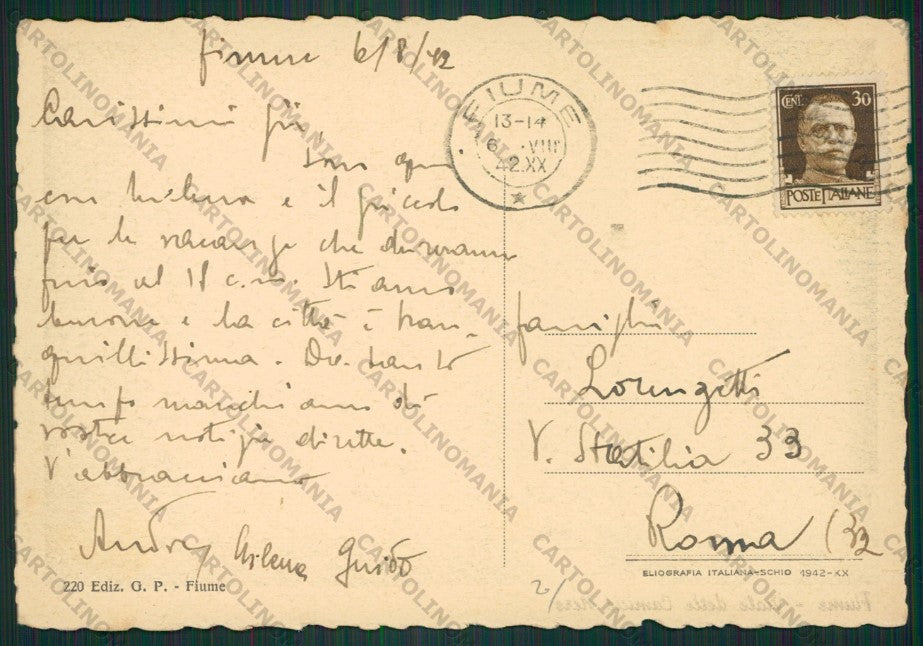 Fiume 6/8/42
Carissimi
Sono qui
con Milena e il piccolo
per le vacanze che dureranno
fino al 18 c.m. Stiamo
benone e la città è tran-
quillissima. Da tanto
tempo manchiamo di
vostre notizie dirette.
V'abbracciamo
Milena Guido
220 Ediz. G. P. - Fiume
FIUME
13-14
6 . VIII
42.XX
CENT. 30
POSTE ITALIANE
famiglia
Lorenzetti
V. Statilia 33
Roma (32
ELIOGRAFIA ITALIANA-SCHIO 1942-XX
CARTOLINOMANIA